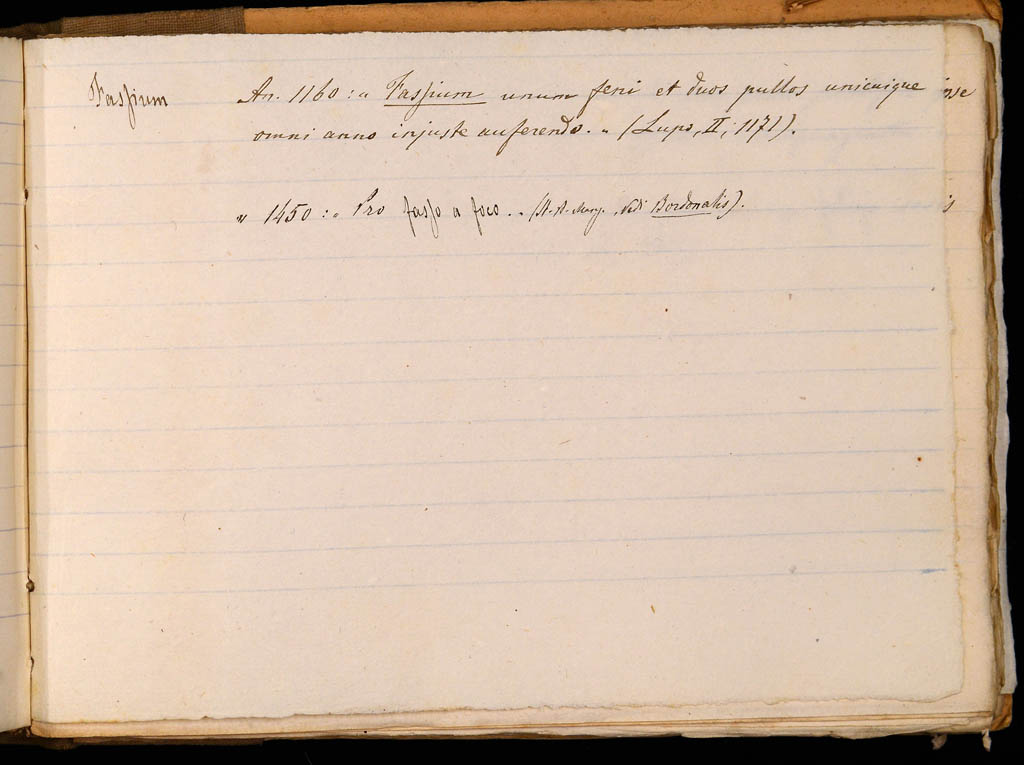 Fassium An. 1160: " Fassium unum feni et duos pullos unicuique
omni anno injuste auferendo. " (Lupo, II, 1171).
" 1450: " Pro fasso a foco. " (St. A. Marg. Vedi Bordonalis).